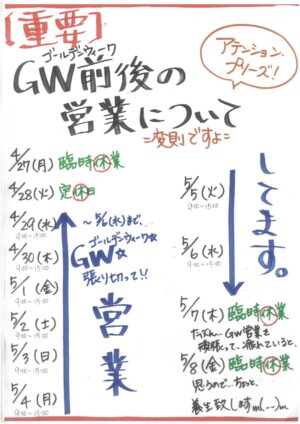 [重要]
アテンション
プリーズ!
ゴールデンウィーク
GW前後の
営業について
=変則ですよ=
4/27(月) 臨時休業
4/28(火) 定休日
4/29(水)
9:00~15:00
4/30(木)
9:00~15:00
5/1(金)
9:00~15:00
5/2(土)
9:00~15:00
5/3(日)
9:00~15:00
5/4(月)
9:00~15:00
~5/6(水)まで、
ゴールデンウィーク☆
GW☆
張り切って!!
営業
してます。
5/5(火)
9:00~15:00
5/6(水)
9:00~15:00
5/7(木) 臨時休業
たぶん…GW営業を
頑張って、疲れていると、
5/8(金) 臨時休業
思うので…ちょっと、
養生致しますm(--)m